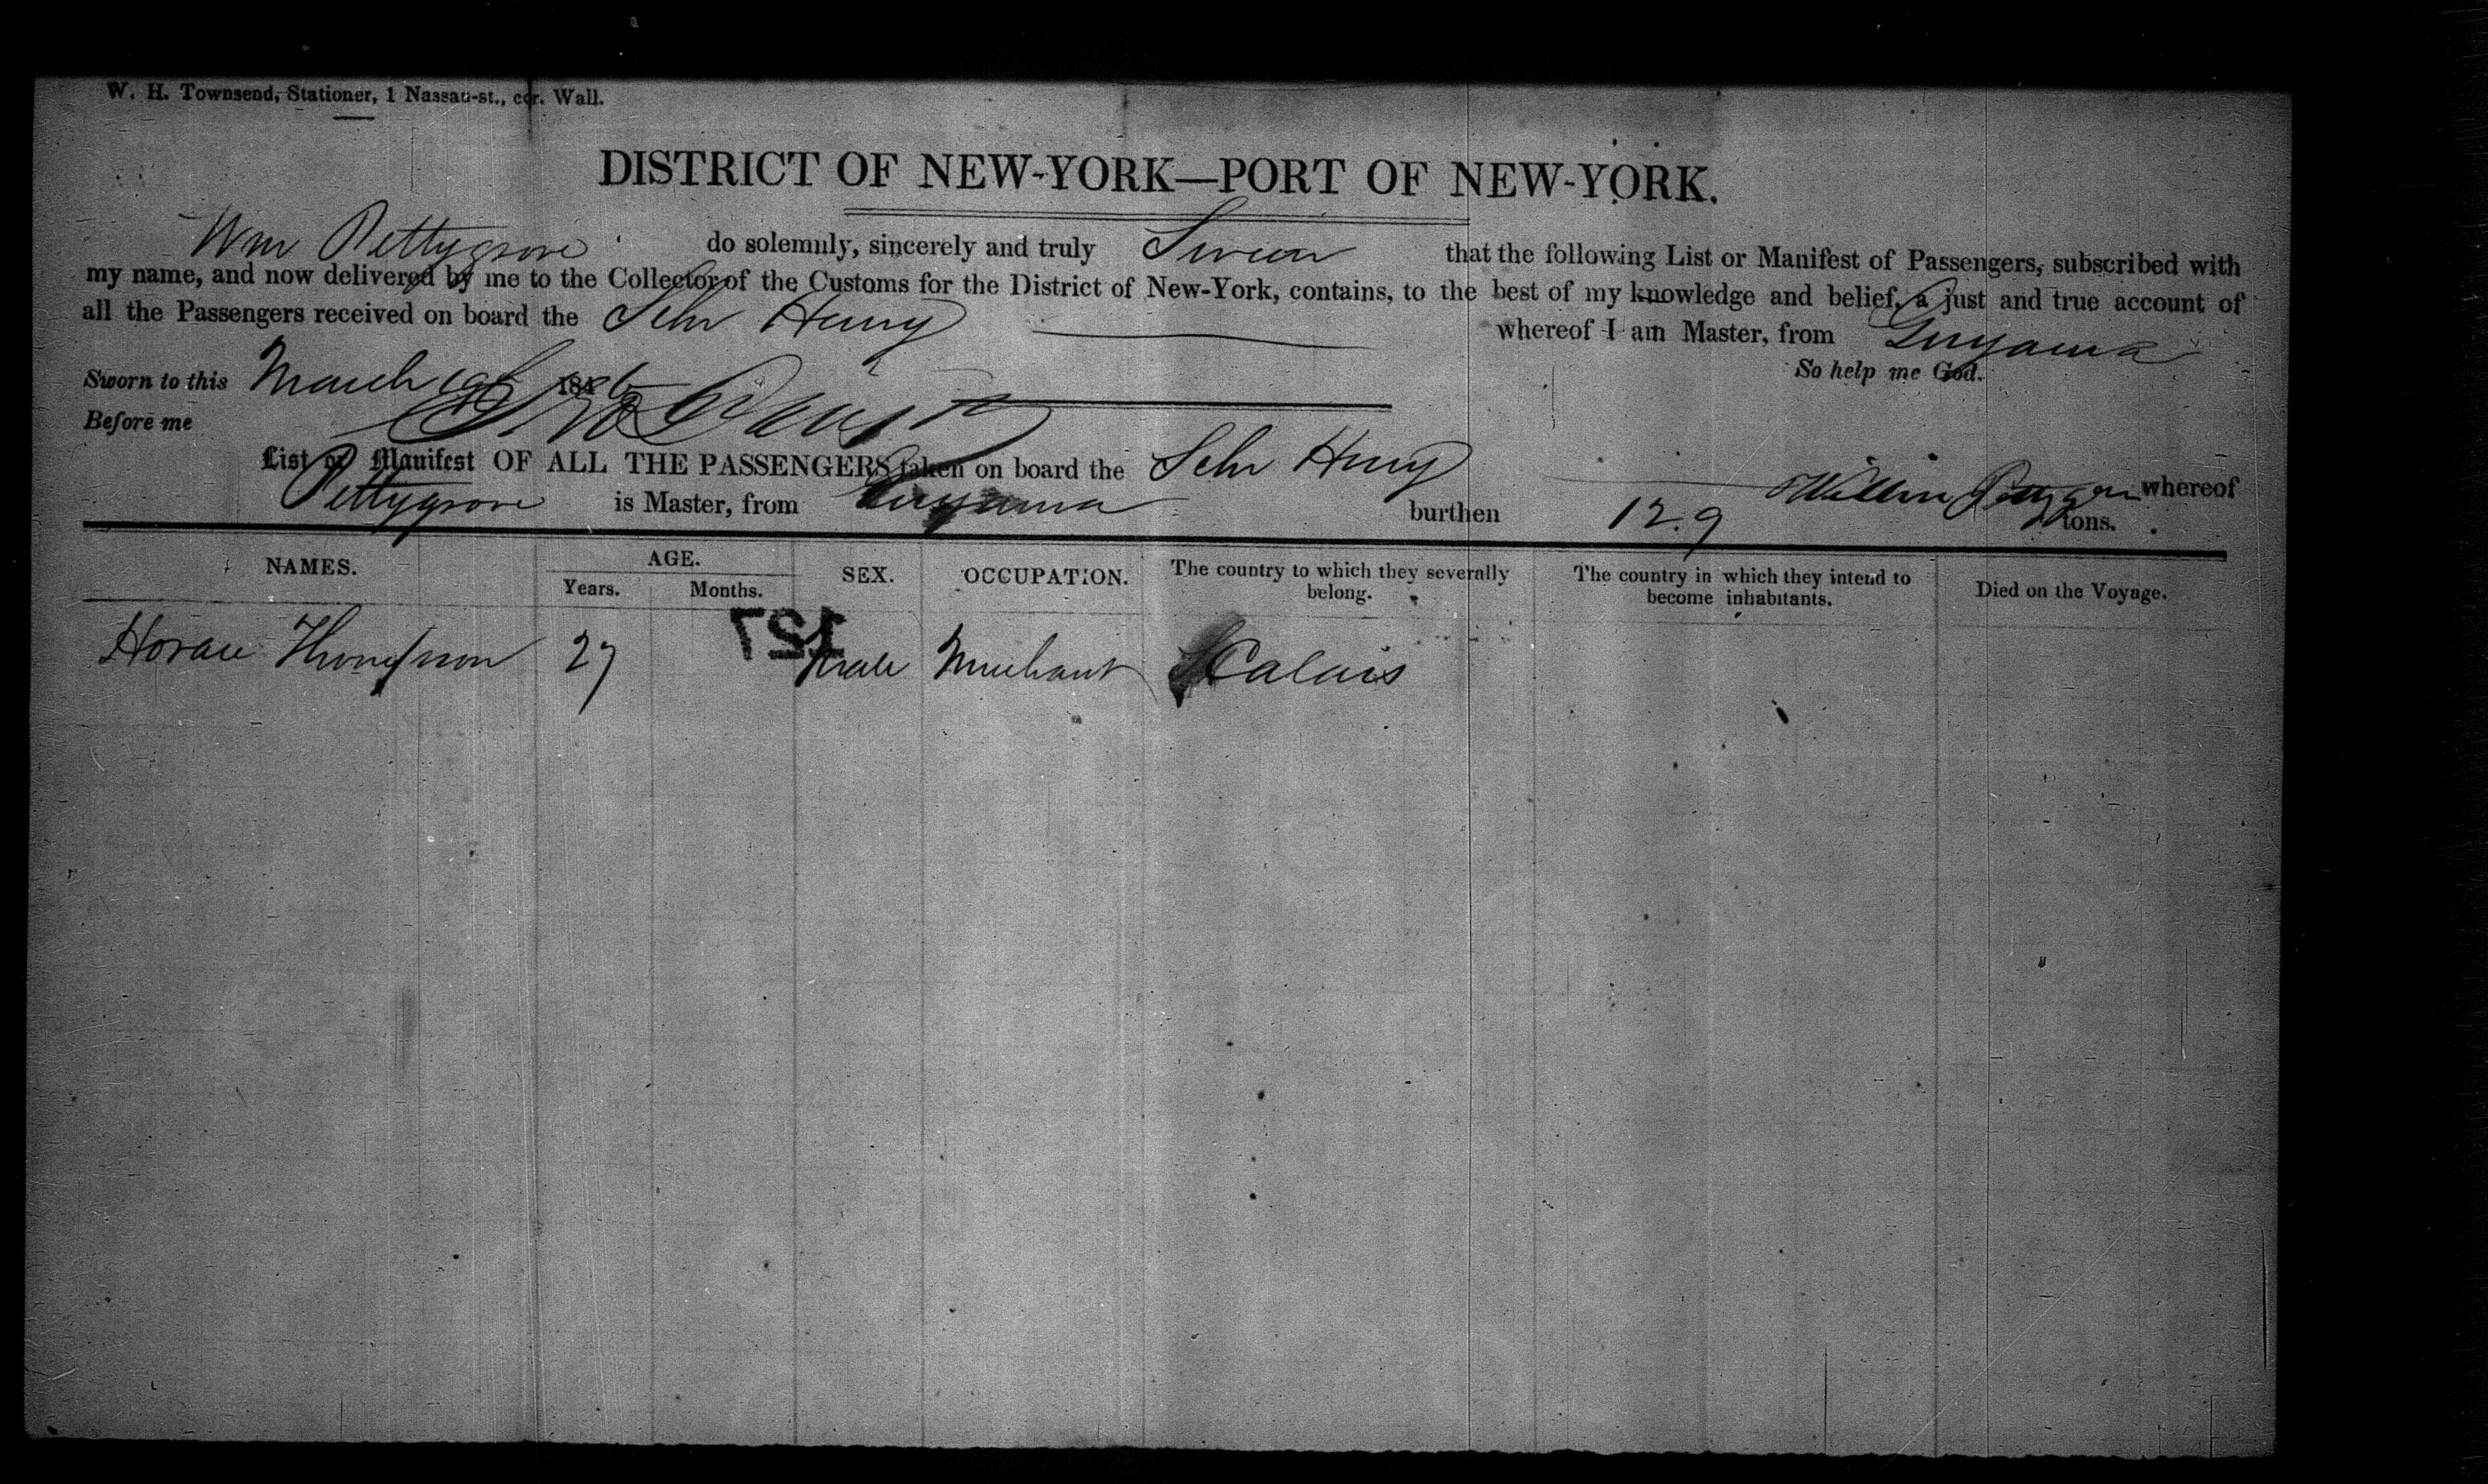 W. H. Townsend, Stationer, 1 Nassau-st., cor. Wall.
DISTRICT OF NEW-YORK—PORT OF NEW-YORK.
Wm Pettygrove do solemnly, sincerely and truly Swear that the following List or Manifest of Passengers, subscribed with
my name, and now delivered by me to the Collector of the Customs for the District of New-York, contains, to the best of my knowledge and belief, a just and true account of
all the Passengers received on board the Schr Henry whereof I am Master, from Guyama
So help me God.
Sworn to this March
Before me
List or Manifest OF ALL THE PASSENGERS taken on board the Schr Henry whereof
Pettygrove is Master, from Guyama burthen 129 tons.
NAMES. AGE. SEX. OCCUPATION. The country to which they severally belong. The country in which they intend to become inhabitants. Died on the Voyage.
Years. Months.
127
Horace Thompson 27 Male Merchant Calais